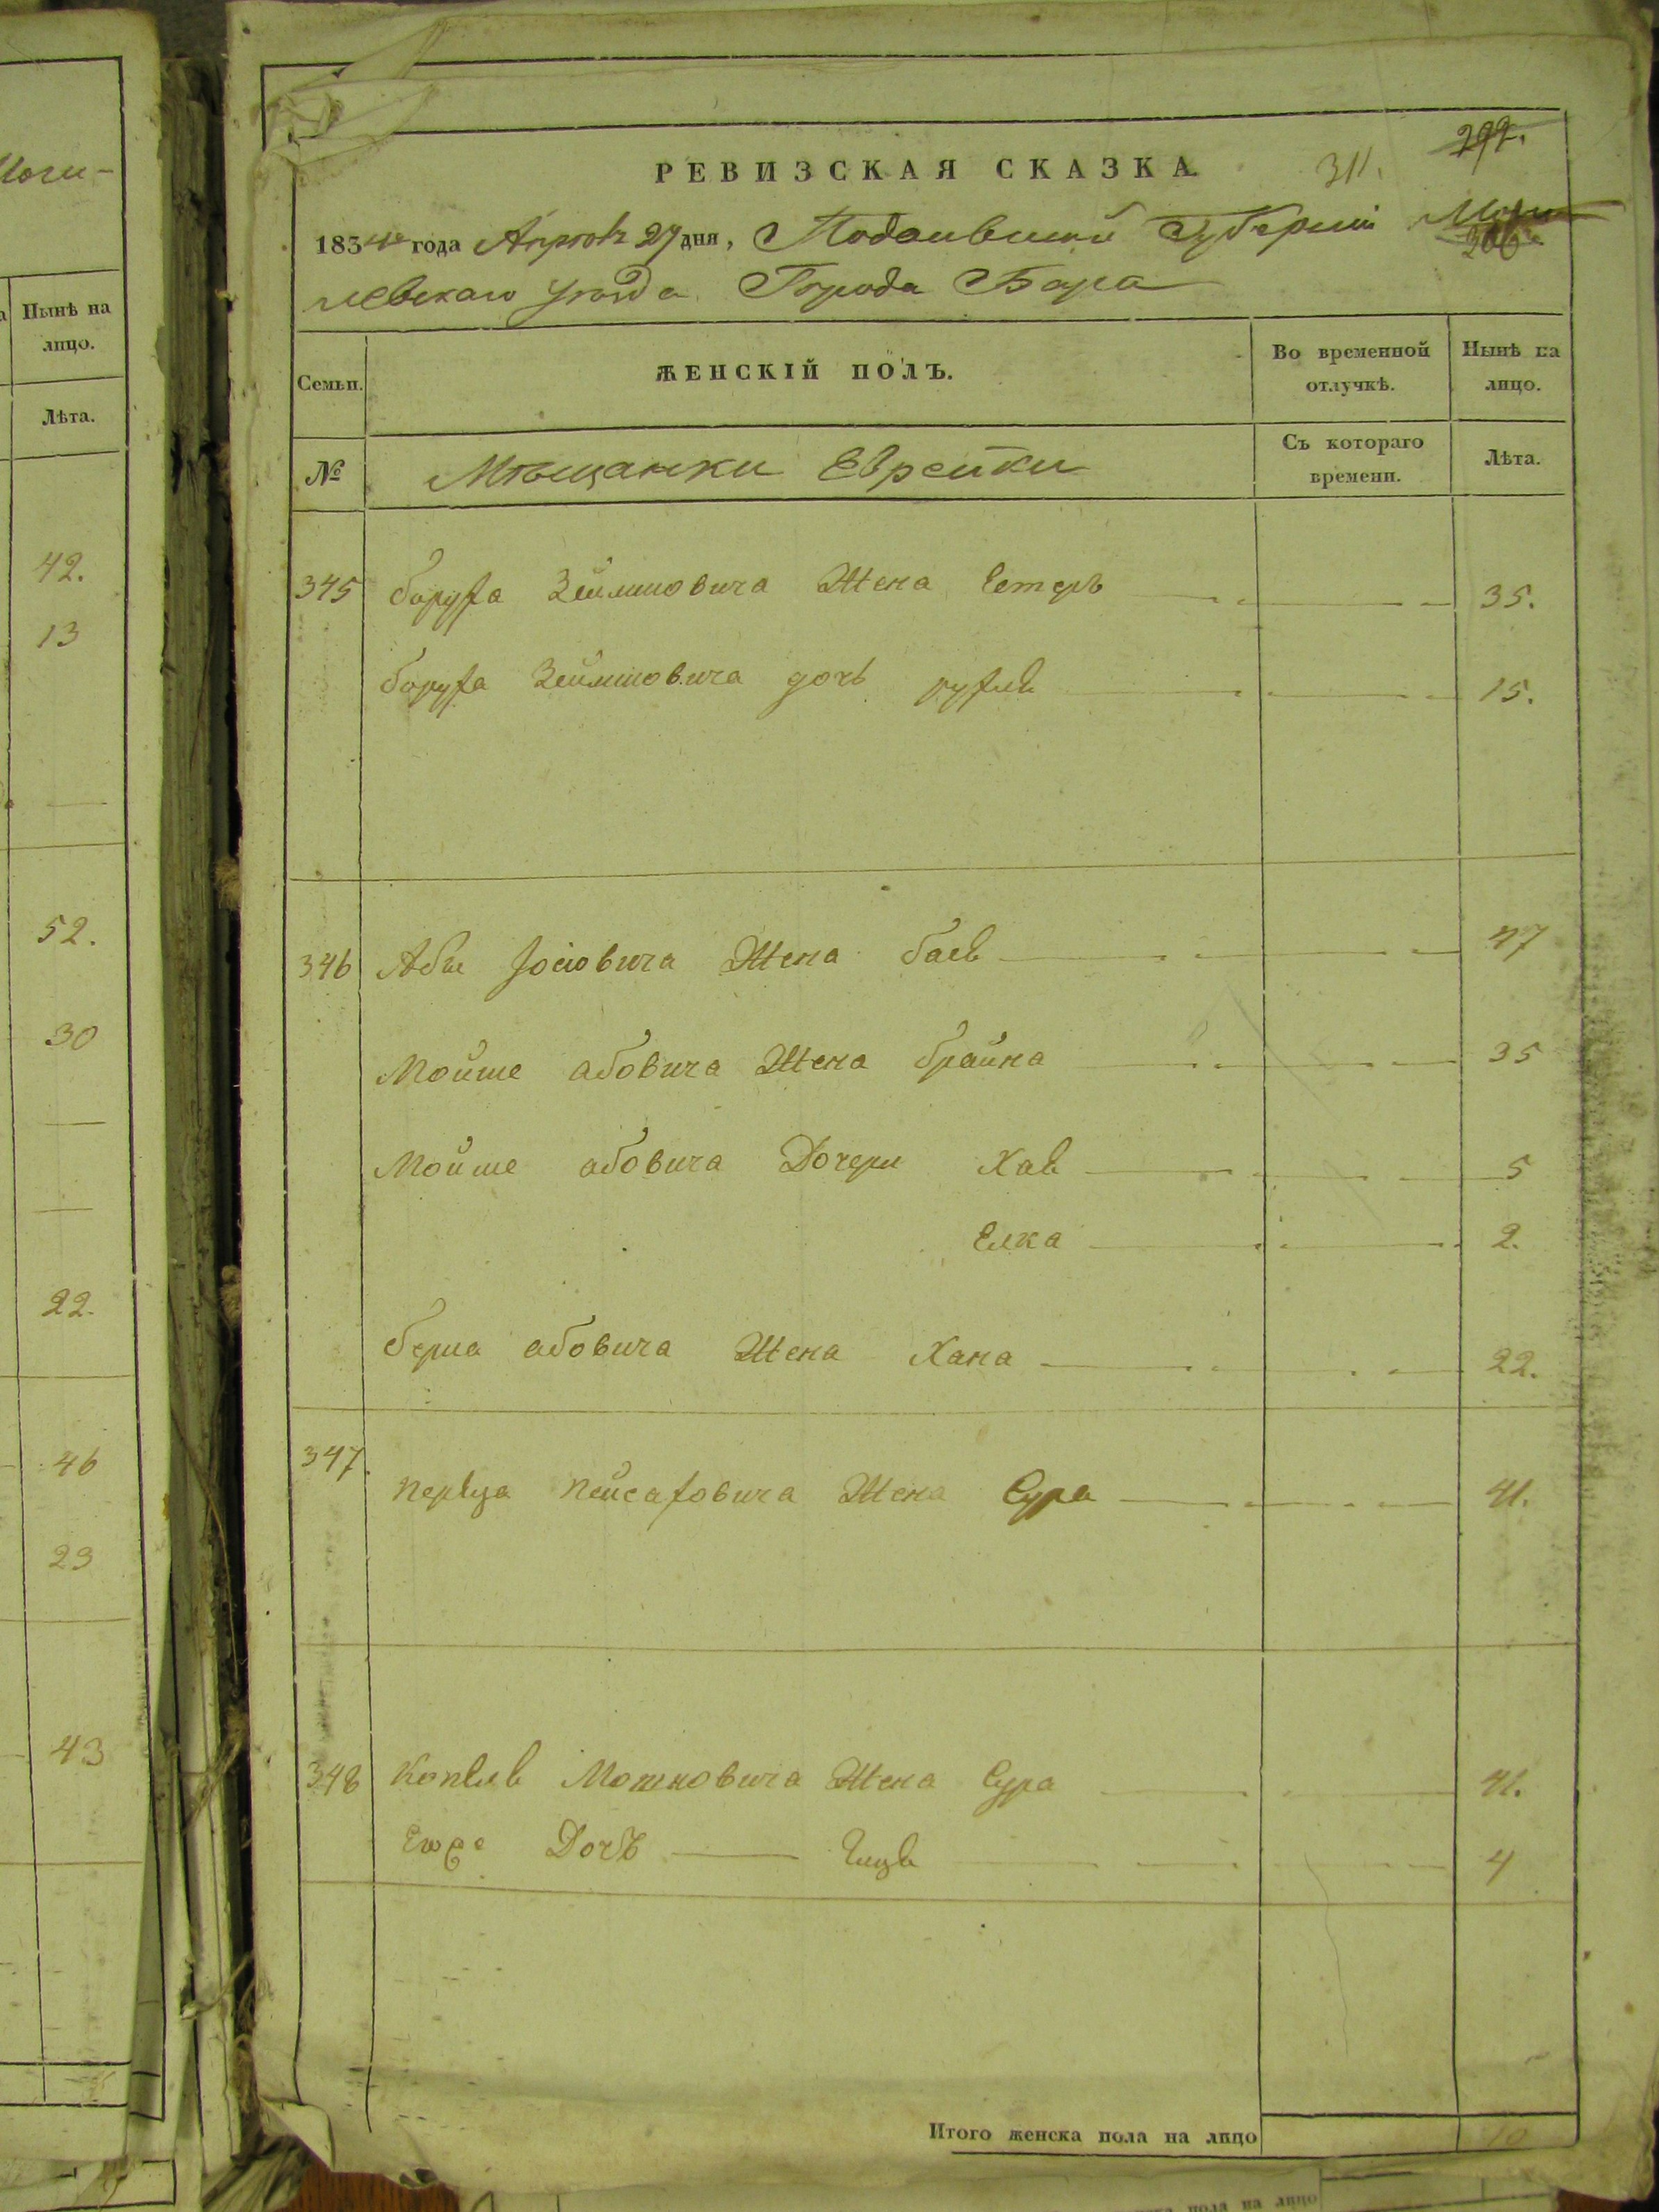 Моги-
Нынѣ на
лицо.
Лѣта.
42.
13
52.
30
22.
46
23
43
299.
РЕВИЗСКАЯ СКАЗКА
311.
1834го года Апреля 27 дня, Подольской Губернии Моги
306
левскаго уѣзда Города Бара
Семьи.
ЖЕНСКІЙ ПОЛЪ.
Во временной
отлучкѣ.
Нынѣ на
лицо.
№
Мѣщанки Еврейки
Съ котораго
времени.
Лѣта.
345 боруха Зельмановича Жена Естеръ 35.
боруха Зельмановича дочь рухля 15.
346 Абы Іосіовича Жена бася 47
Мойше абовича Жена брайна 35
Мойше абовича Дочери Хая 5
Елка 2.
берша абовича Жена Хана 22.
347.
перца пейсаховича Жена Сура 41.
348 Копеля Мошковича Жена Сура 41.
Его же Дочь 4
Итого женска пола на лицо 10
пола на лицо